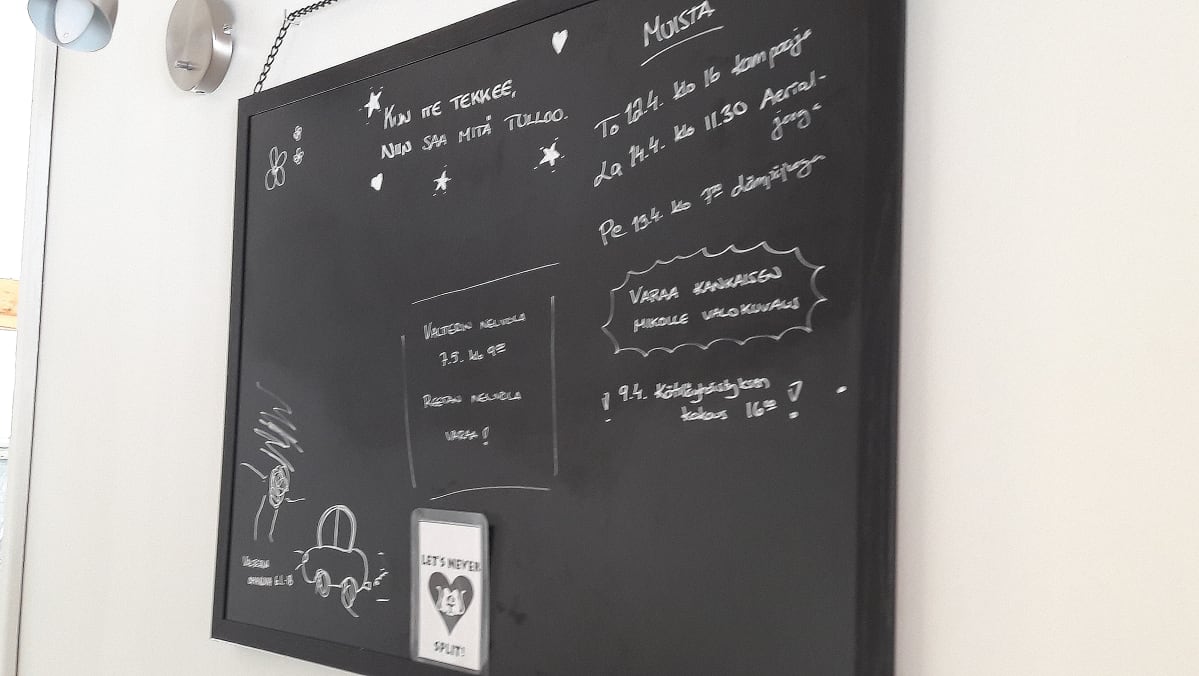 KUN ITE TEKKEE,
NIIN SAA MITÄ TULLOO.
MUISTA
To 12.4. klo 16 kampaaja
La 14.4. klo 11.30 Aerial-
jooga
Pe 13.4. klo 7³⁰
VARAA KANKAISEN
MIKOLLE VALOKUVAUS
! 9.4. Kotiläyhdistyksen
kokous 16⁰⁰ !
VALTTERIN NEUVOLA
7.5. klo 9⁰⁰
REETAN NEUVOLA
VARAA!
LET'S NEVER
SPLIT!